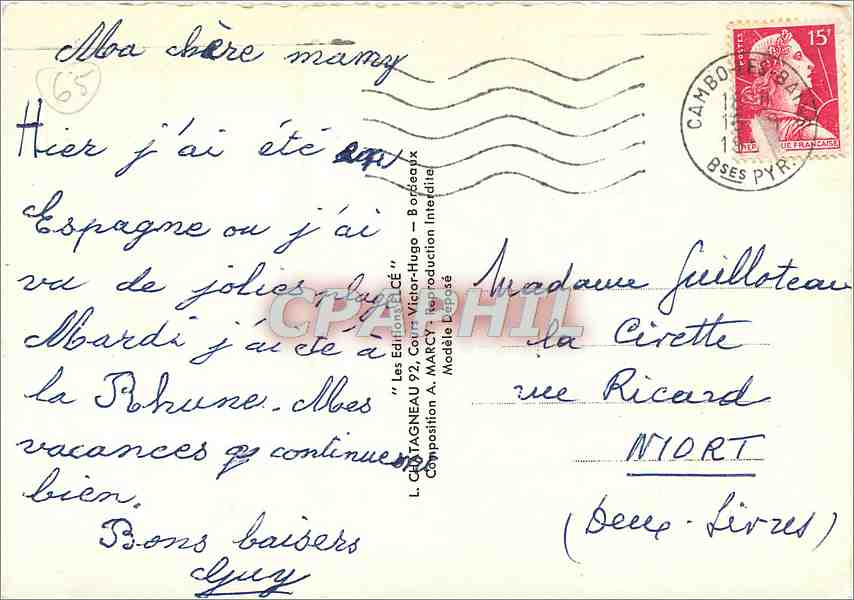 Ma chère mamy
65
Hier j'ai été en
Espagne ou j'ai
vu de jolies plages
Mardi j'ai été à
la Rhune. Mes
vacances continuent
bien.
Bons baisers
Guy
"Les Editions ELCÉ"
L. CHATAGNEAU 92, Cours Victor-Hugo — Bordeaux
Composition A. MARCY - Reproduction Interdite
Modèle Déposé
CPAPHIL
POSTES
15F
CAMBO-LES-BAINS
BSES PYR.
Madame Guilloteau
la Civette
rue Ricard
NIORT
(Deux-Sèvres)